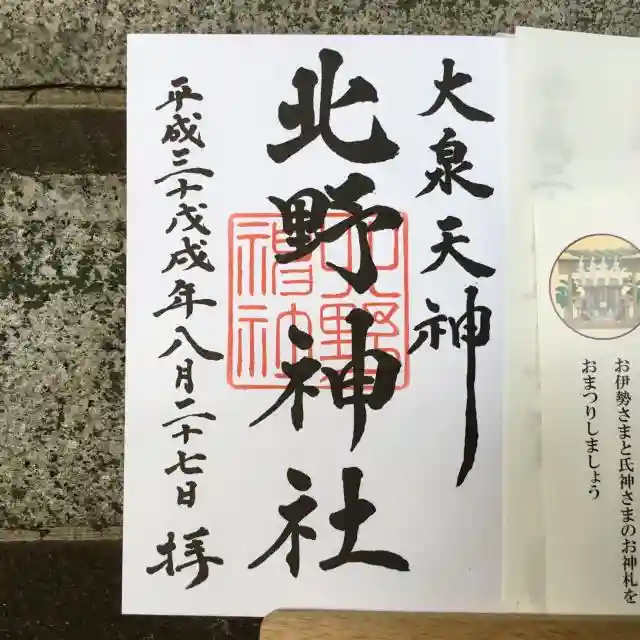 大泉天神
北野神社
平成三十戊戌年八月二十七日 拝
お伊勢さまと氏神さまのお神札を
おまつりしましょう